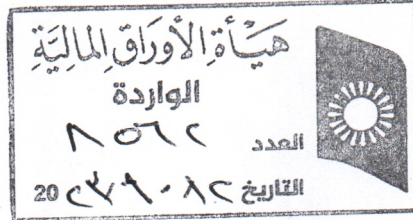 هَيْأَةِ الأَوْرَاقِ المَالِيَّةِ
الواردة
العدد ٨٥٦٢
التاريخ 20